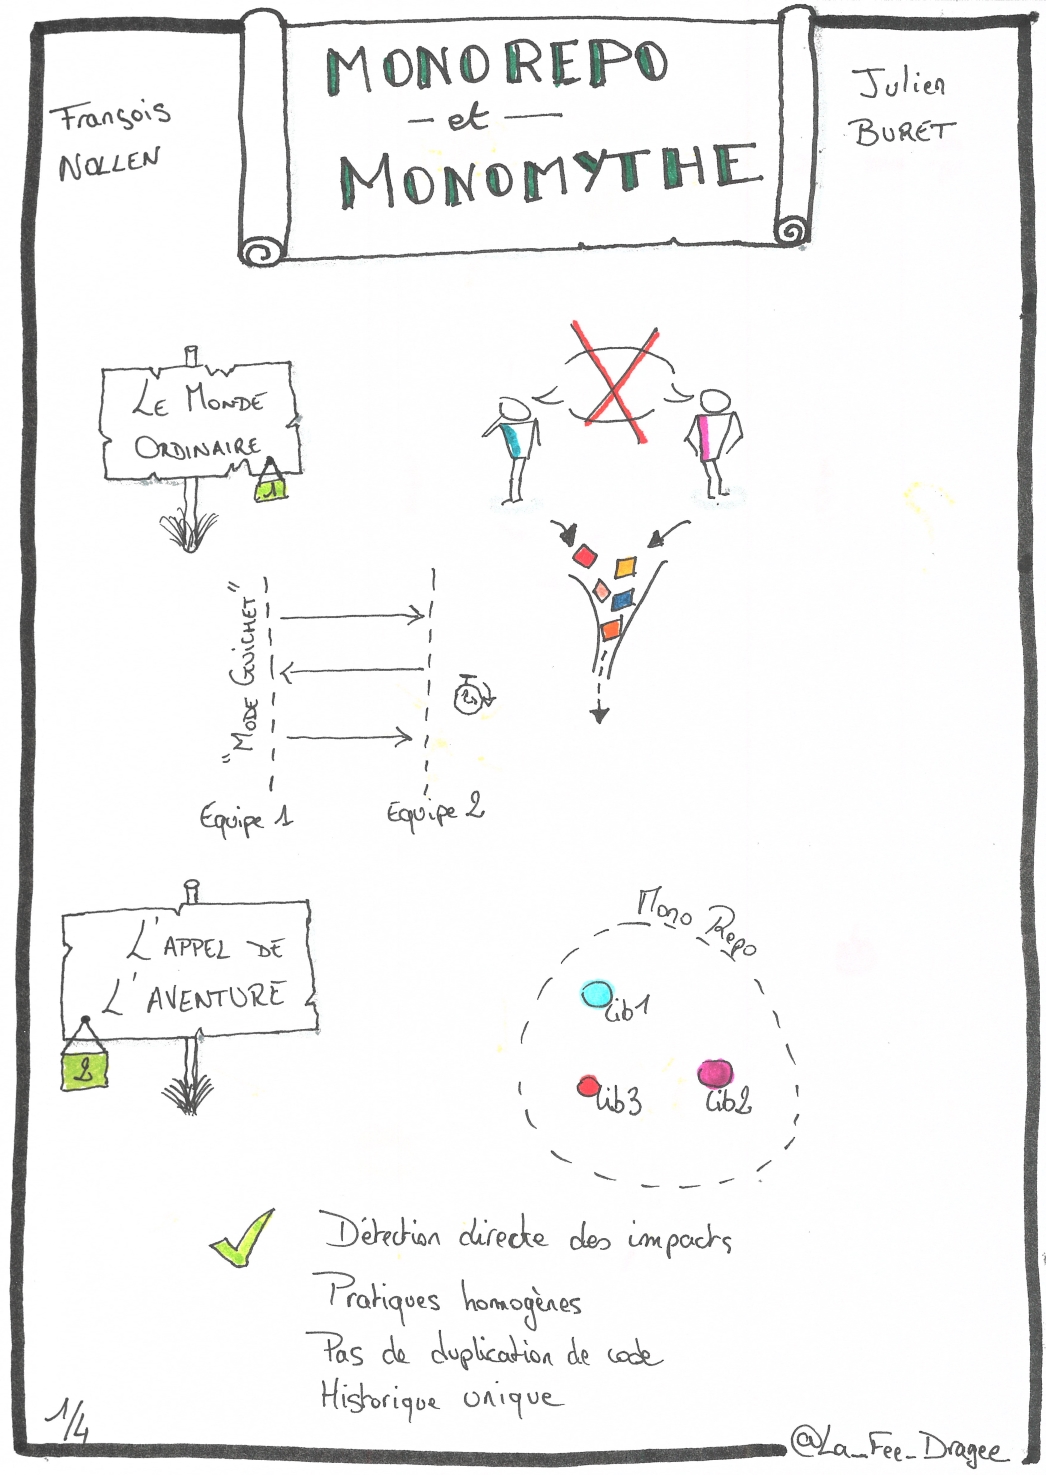 MONOREPO
- et -
MONOMYTHE
François
NOLLEN
Julien
BURET
LE MONDE
ORDINAIRE
1
"MODE GUICHET"
Equipe 1
Equipe 2
L'APPEL DE
L'AVENTURE
2
Mono Repo
Lib1
Lib3
Lib2
Détection directe des impacts
Pratiques homogènes
Pas de duplication de code
Historique unique
1/4
@La_Fee_Dragee